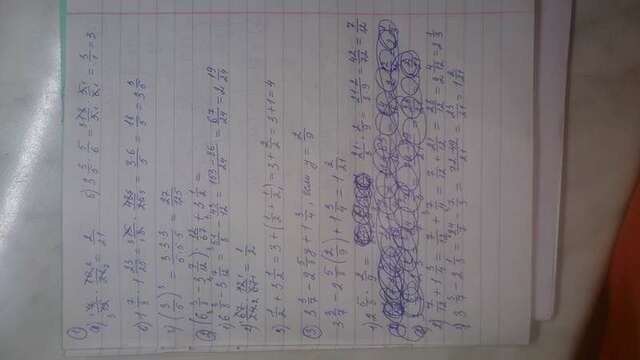 1
а) 4/15 · 10/28 = 2/21 б) 3 3/5 · 5/6 = 18/5 · 5/6 = 3/1 = 3
в) 1 7/8 · 1 23/25 = 15/8 · 48/25 = 3·6/5 = 18/5 = 3 3/5
г) (3/5)³ = 3·3·3/5·5·5 = 27/125
2 (6 3/8 - 3 7/12) · 12/67 + 3 1/2 =
1) 6 3/8 - 3 7/12 = 51/8 - 43/12 = 153-86/24 = 67/24 = 2 19/24
2) 67/24 · 12/67 = 1/2
3) 1/2 + 3 1/2 = 3 + (1/2 + 1/2) = 3 + 2/2 = 3+1 = 4
3 3 3/7 - 2 5/8 y + 1 3/4, если y = 2/9
3 3/7 - 2 5/8 (2/9) + 1 3/4 = 1 2/21
1) 2 5/8 · 2/9 = 21/8 · 2/9 = 21·2/8·9 = 42/72 = 7/12
2) 7/12 + 1 3/4 = 7/12 + 7/4 = 7/12 + 21/12 = 28/12 = 2 4/12 = 2 1/3
3) 3 3/7 - 2 1/3 = 24/7 - 7/3 = 72-49/21 = 23/21 = 1 2/21